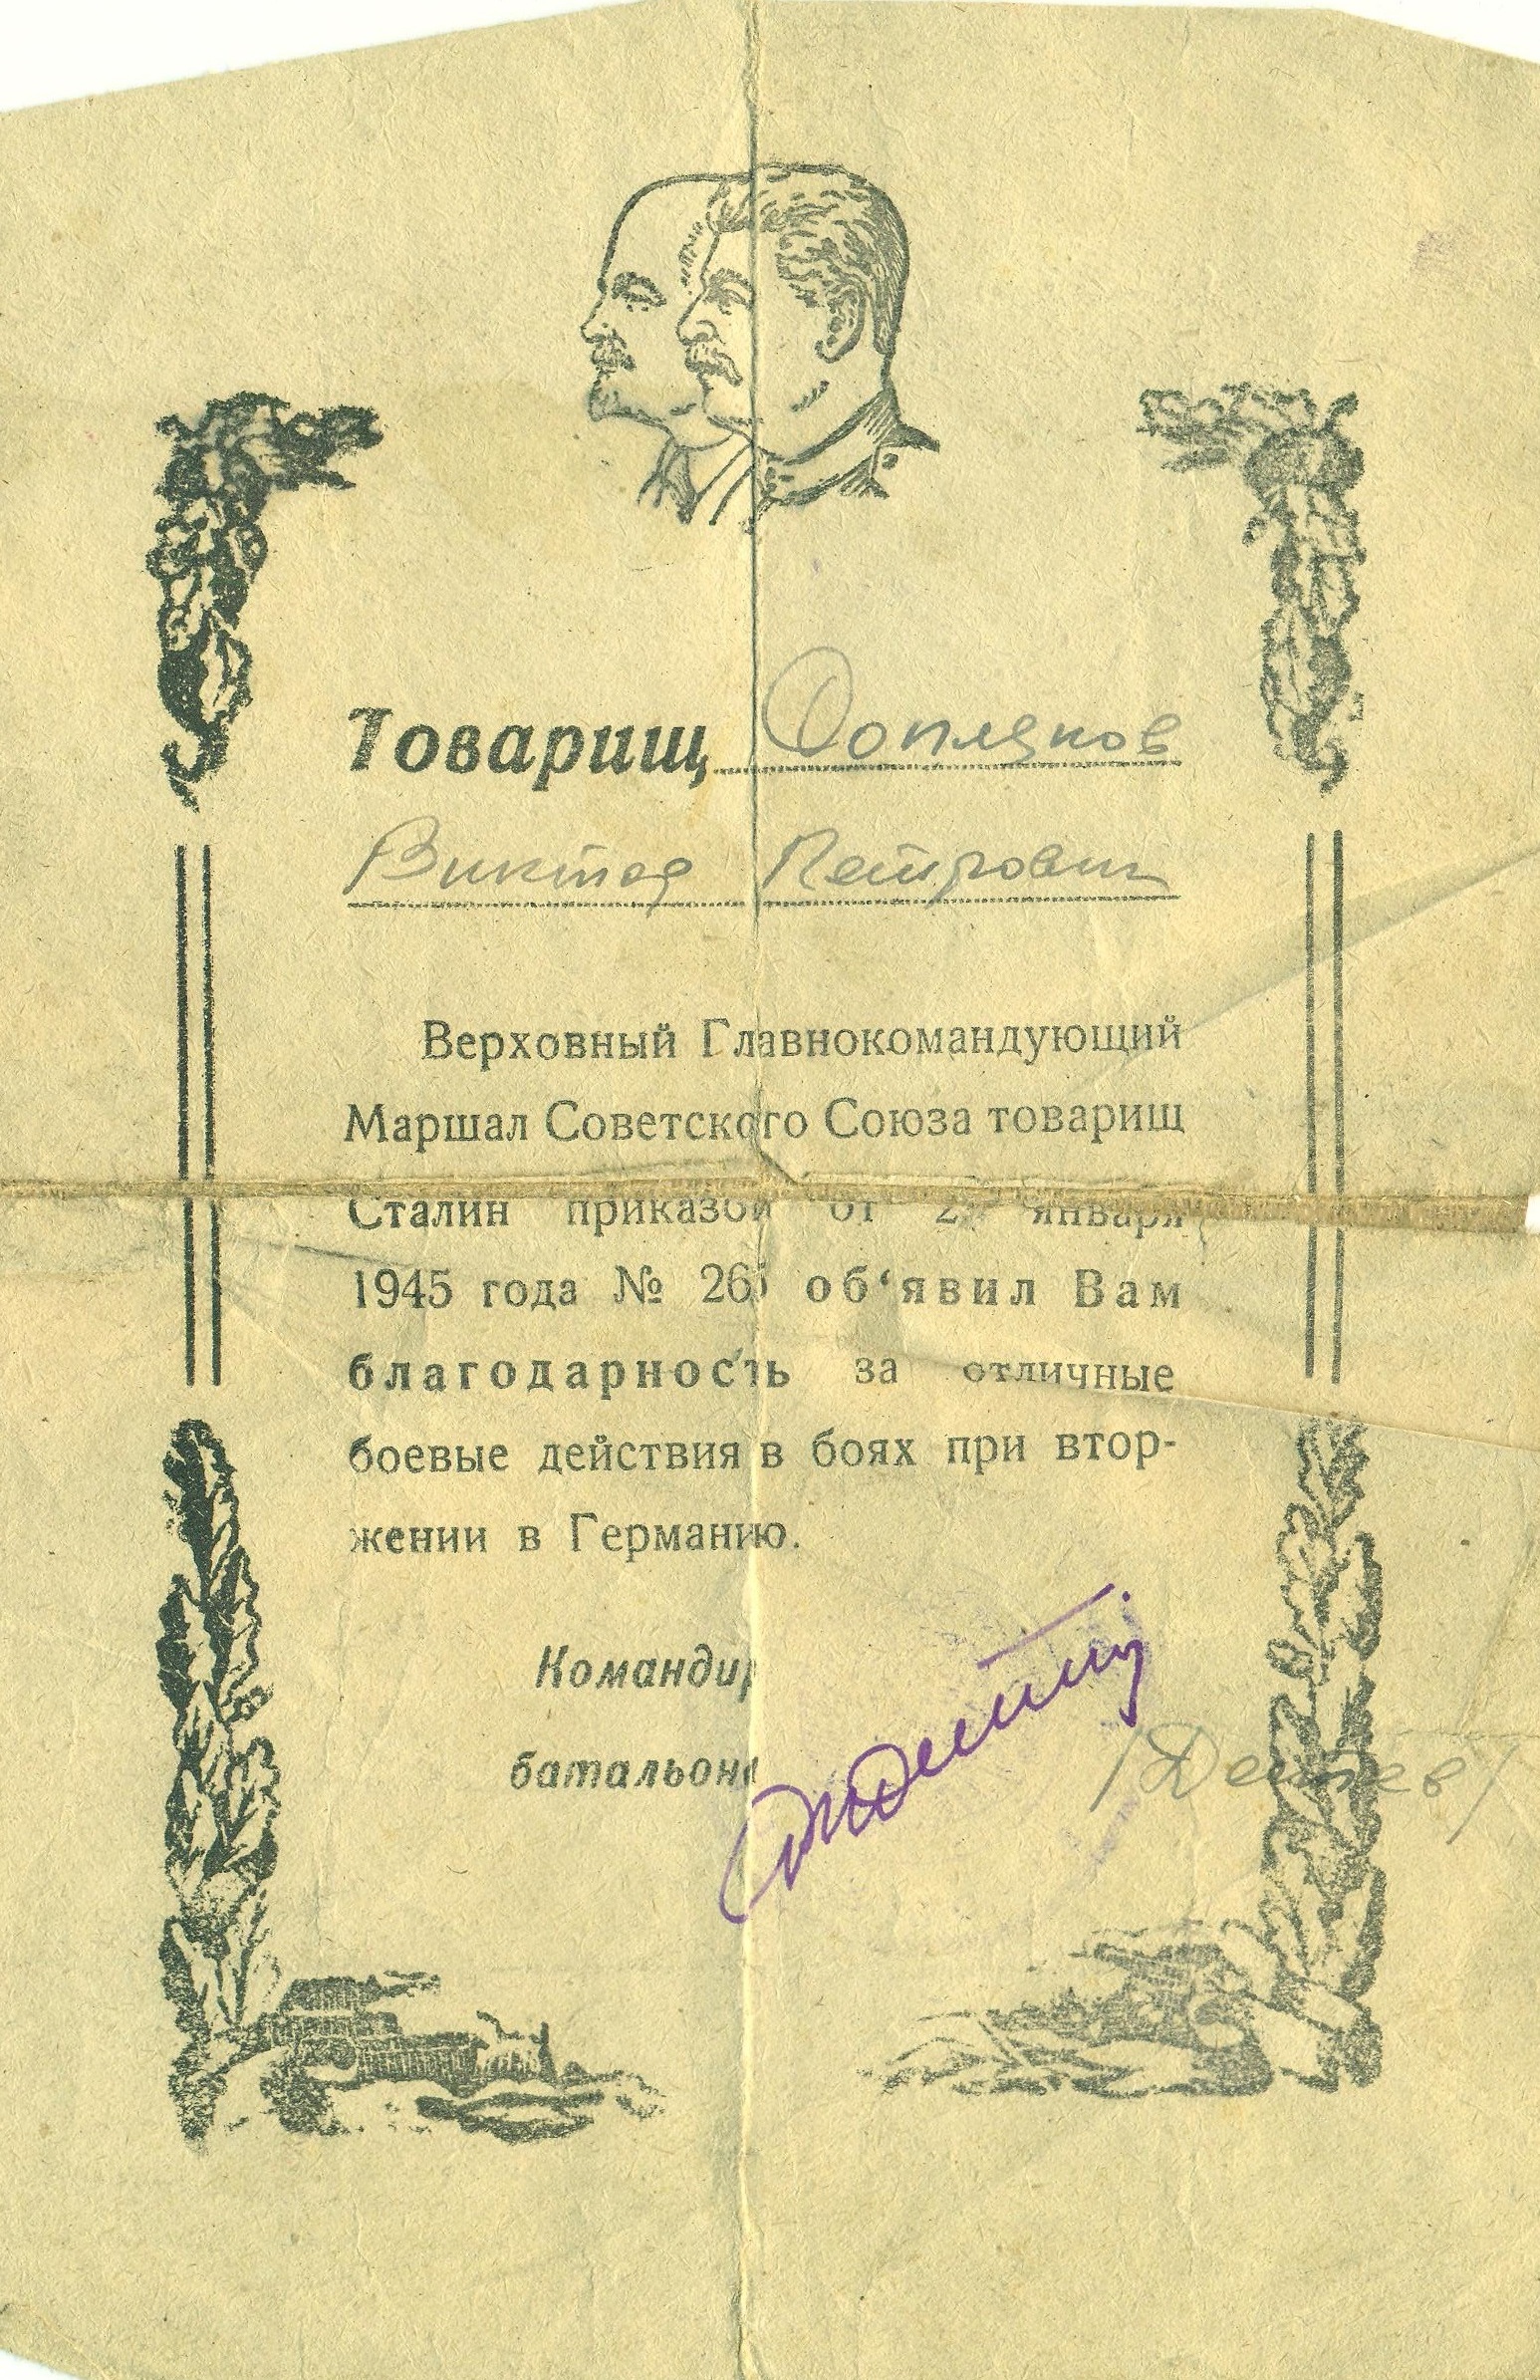 Товарищ Сопляков
Виктор Петрович
Верховный Главнокомандующий
Маршал Советского Союза товарищ
Сталин приказом от января
1945 года № об‘явил Вам
благодарность за отличные
боевые действия в боях при втор-
жении в Германию.
Командир
батальона